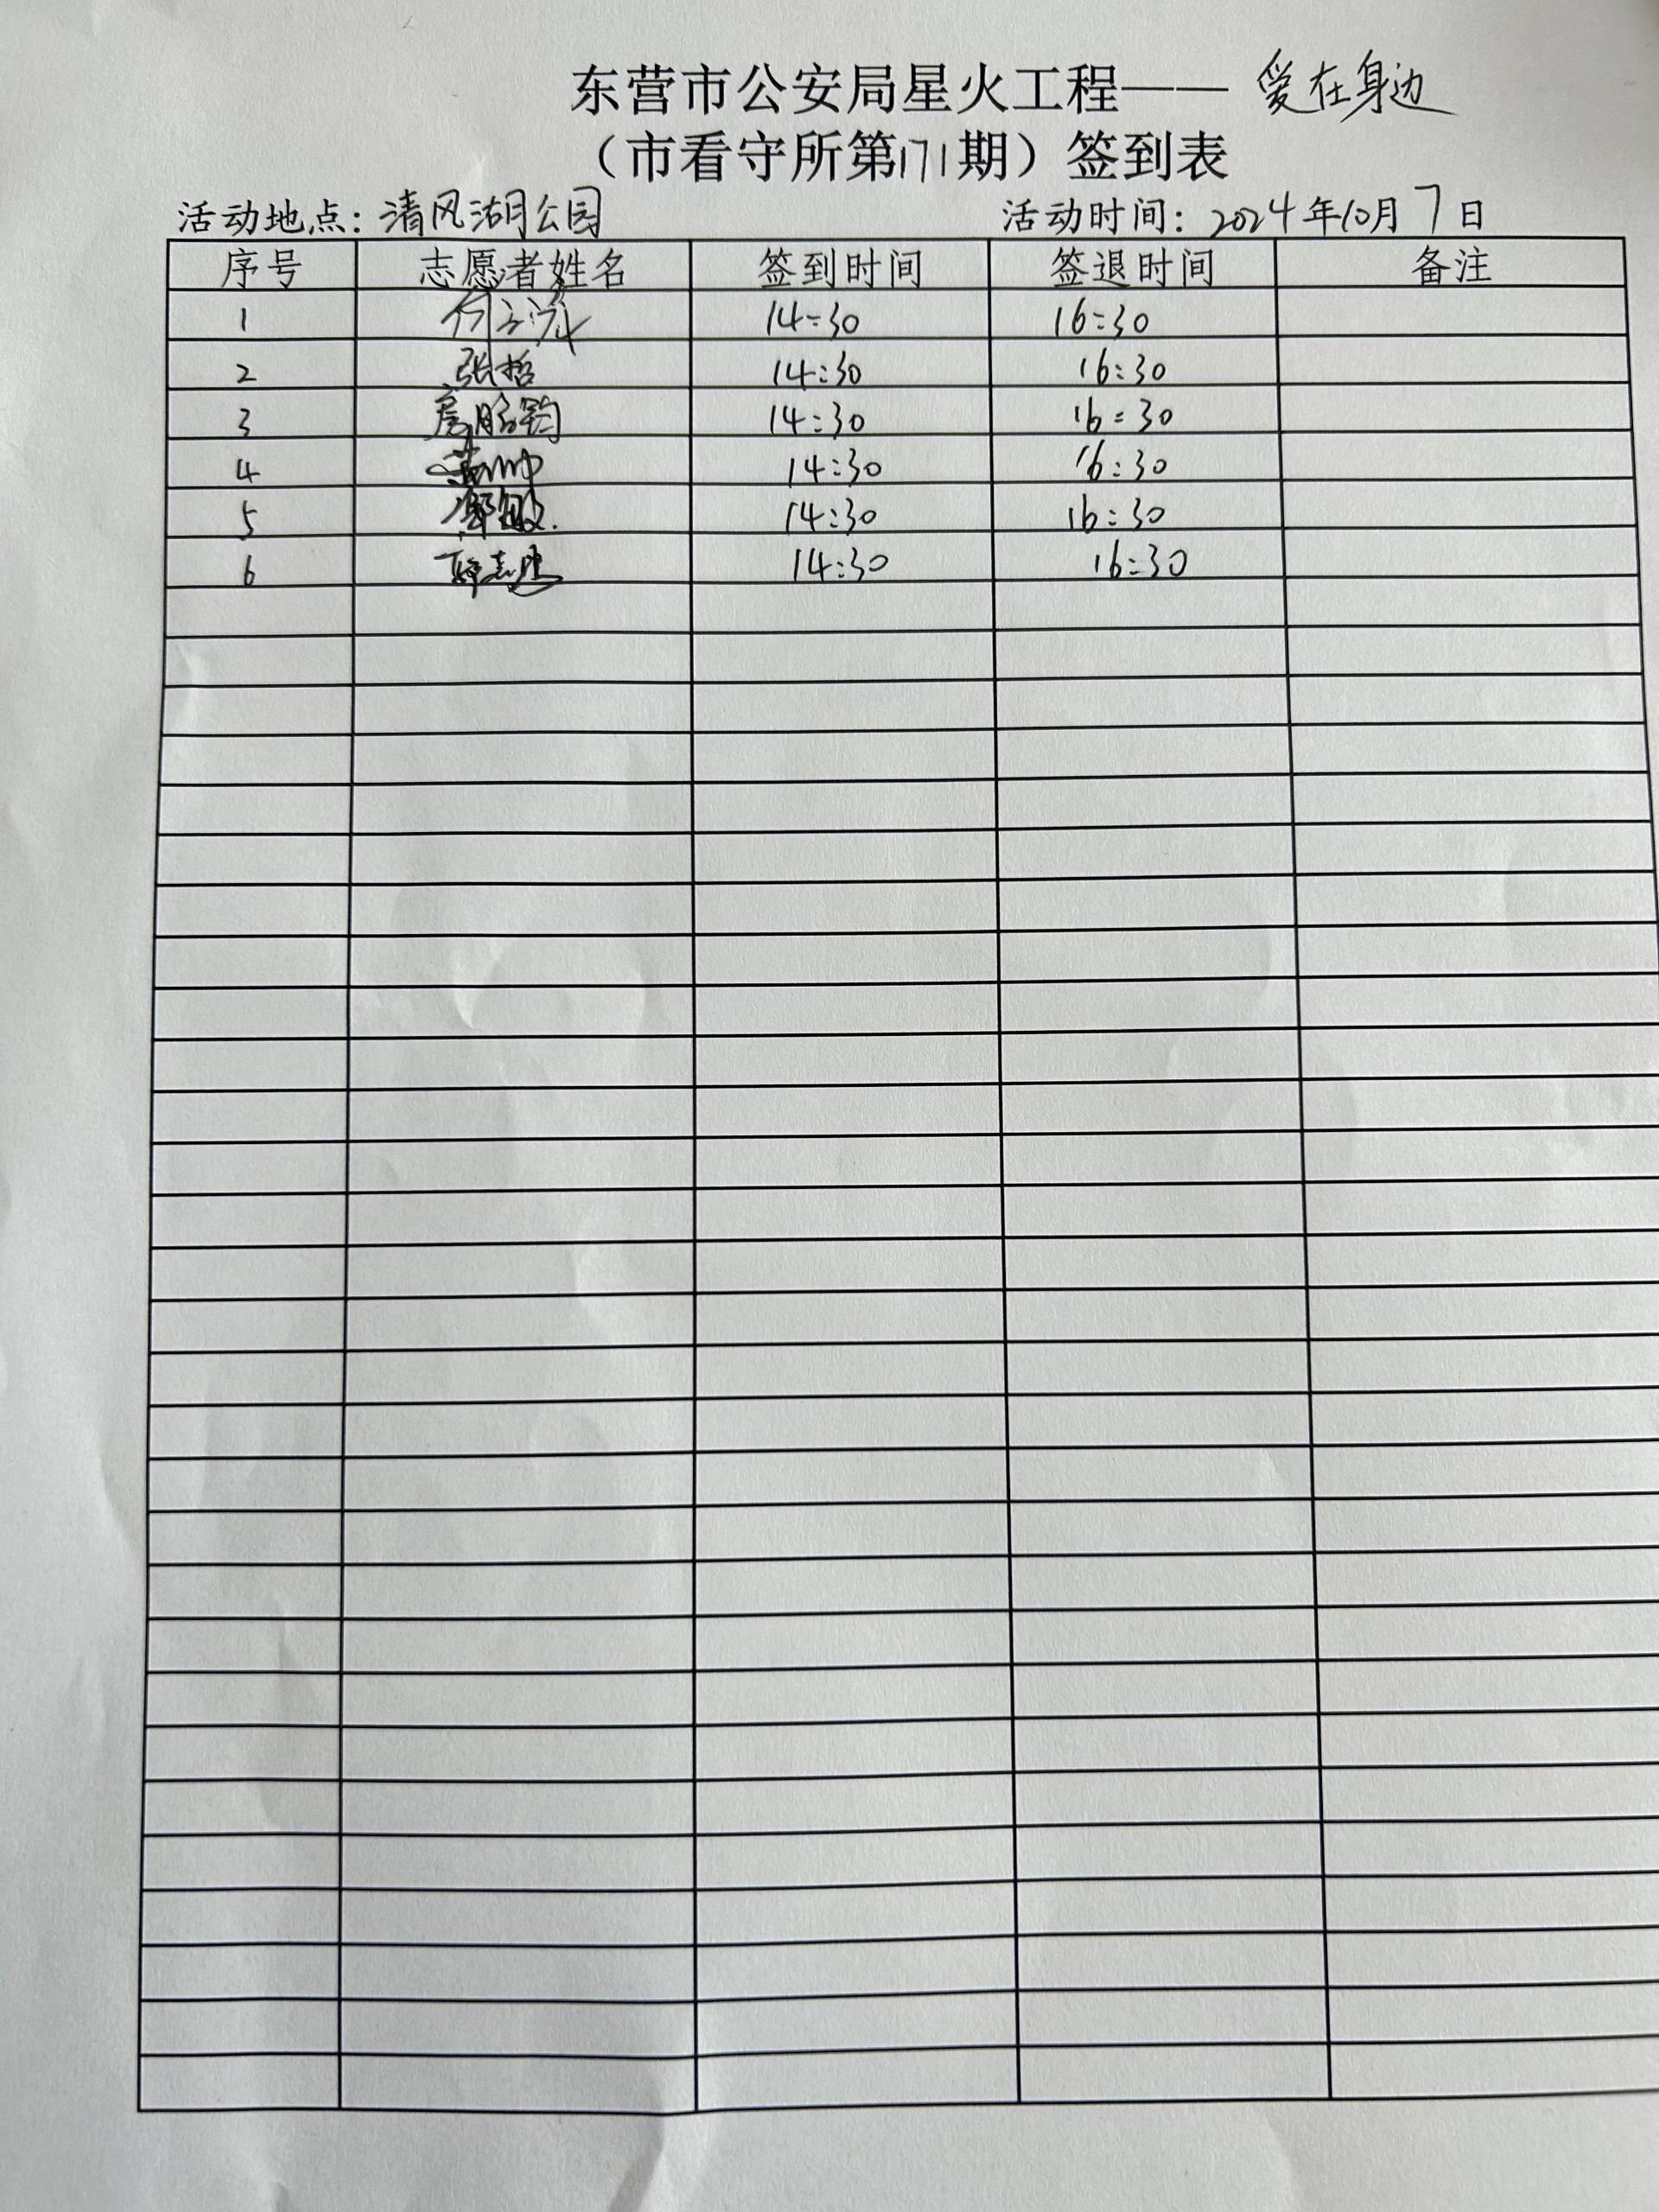 东营市公安局星火工程—— 爱在身边
（市看守所第171期）签到表
活动地点：清风湖公园 活动时间：2024年10月7日
序号 志愿者姓名 签到时间 签退时间 备注
1 14:30 16:30
2 张哲 14:30 16:30
3 14:30 16:30
4 14:30 16:30
5 14:30 16:30
6 14:30 16:30